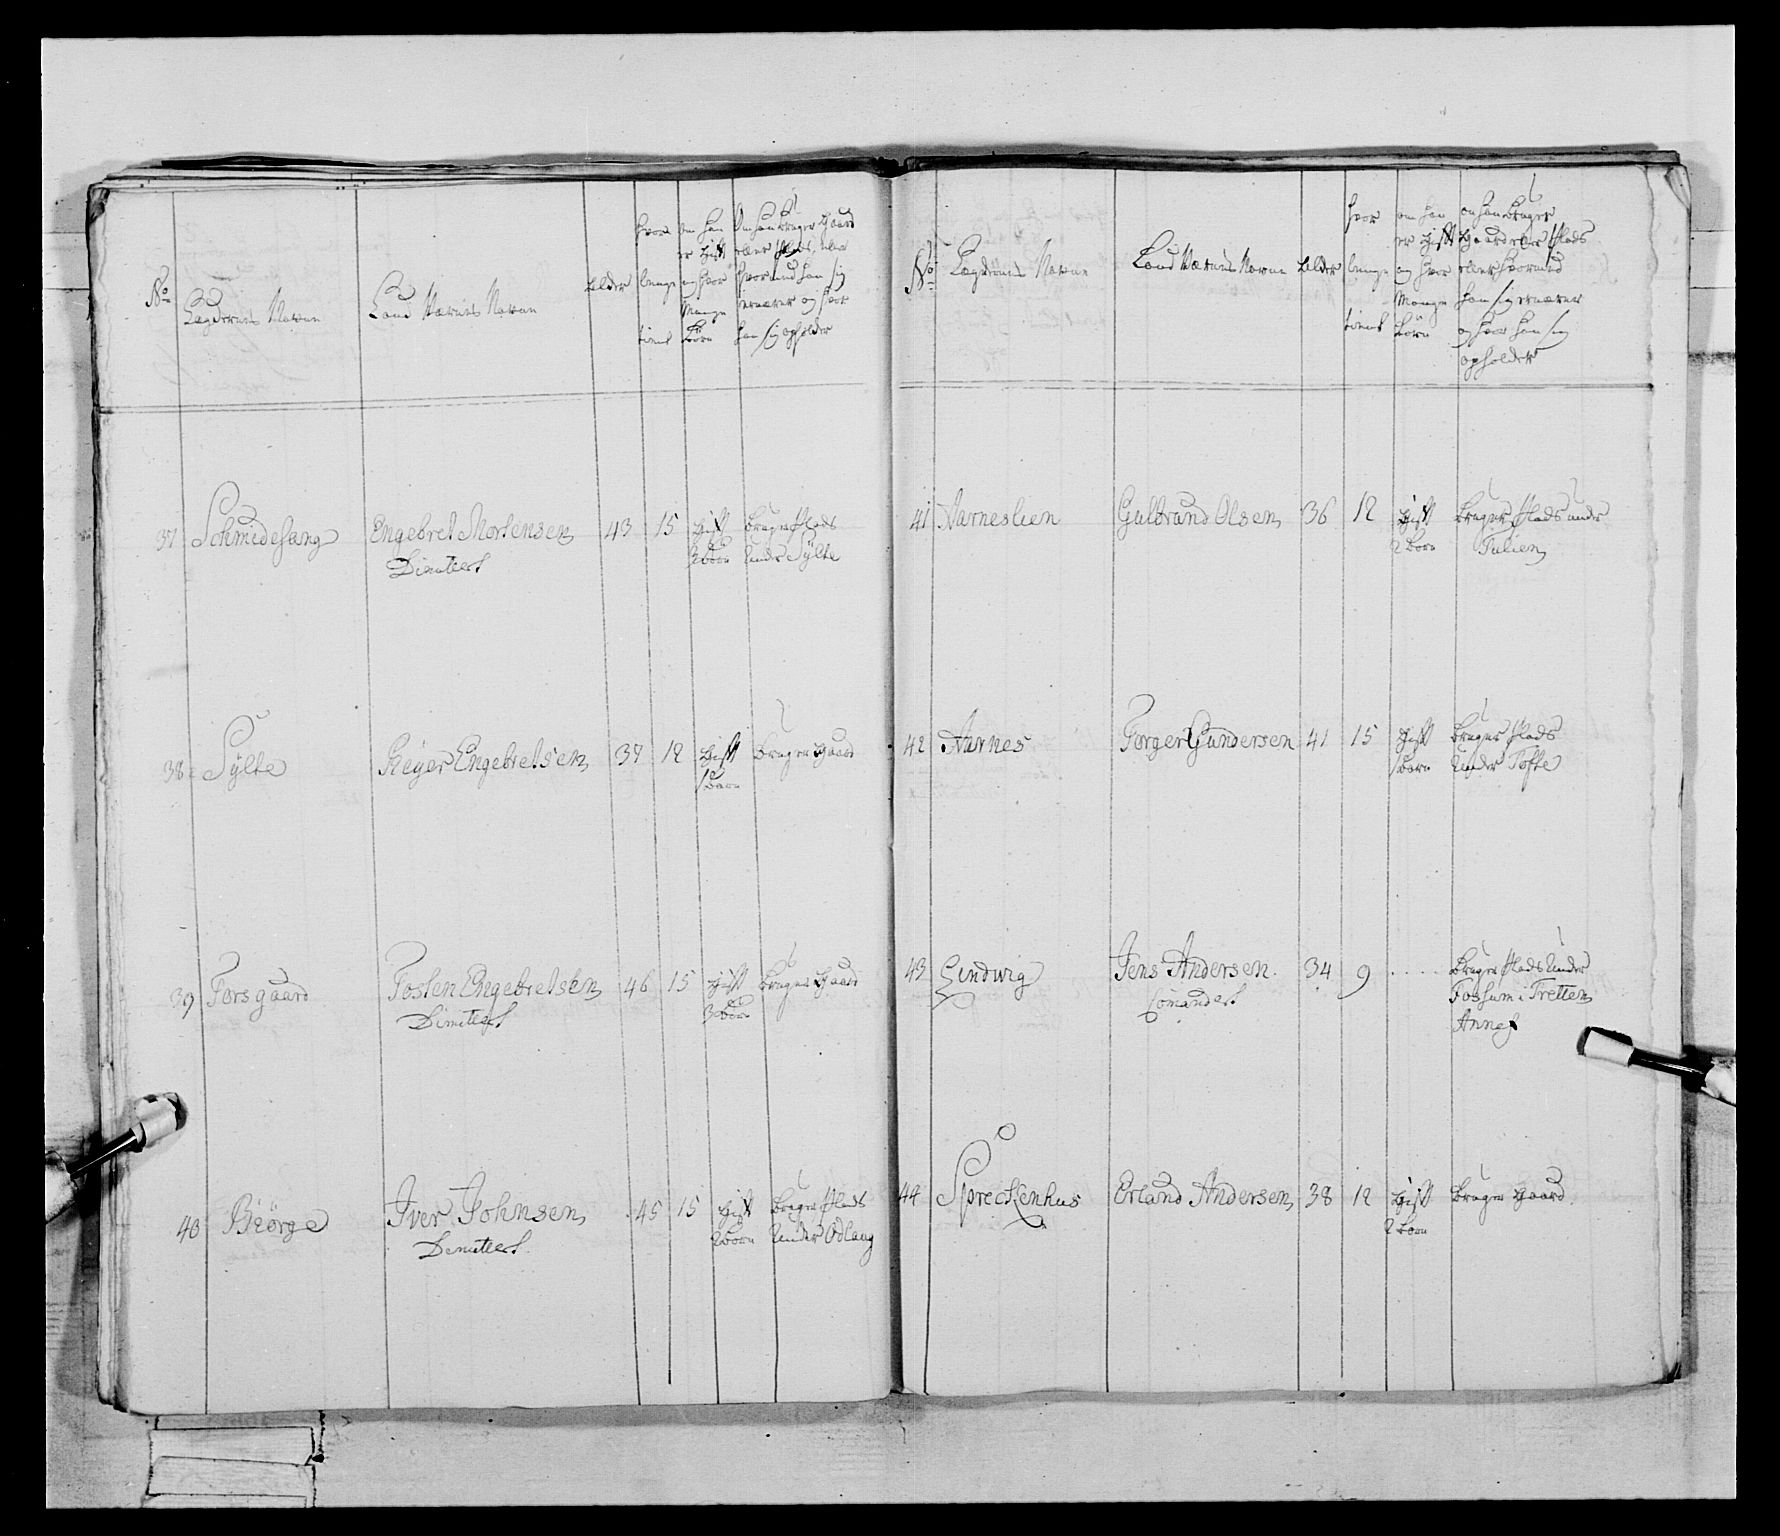 No
Lægdernes Navne
LandVærnes Navne
Alder
hvor
længe
tient
om han
er Gift
og hvor
Mange
Børn
Om han bruger Gaard
eller Plads, eller
hvormed han sig
ernærer og hvor
han sig opholder
37 Schmidesang Engebret Mortensen 43 15 Gift bruger Plads
Dimiteert 3 Børn under Sylte
38 Sylte Reyer Engebretsen 37 12 Gift bruger Gaard
1 Barn
39 Forsgaard Tosten Engebretsen 46 15 Gift bruger Gaard
Dimiteert 3 Børn
40 Biörge Iver Johnsen 45 15 Gift bruger Plads
Dimiteert 2 Børn under Odlaug
No
Lægdernes Navne
Land Værnes Navne
Alder
hvor
længe
tient
om han
er Gift
og hvor
Mange
Børn
om han bruger
Gaard eller Plads
eller hvormed
han sig ernærer
og hvor han sig
opholder
41 Aarneslien Gulbrand Olsen 36 12 Gift bruger Plads under
2 Børn Tulien
42 Aarnes Torger Gundersen 41 15 Gift bruger Plads
1 Barn under Tofte
43 Lindwig Jens Andersen 34 9 ..... bruger Plads under
Comandert Fossum i Tretten
Annex
44 Spreckenhus Erland Andersen 38 12 Gift bruger Gaard
2 Børn